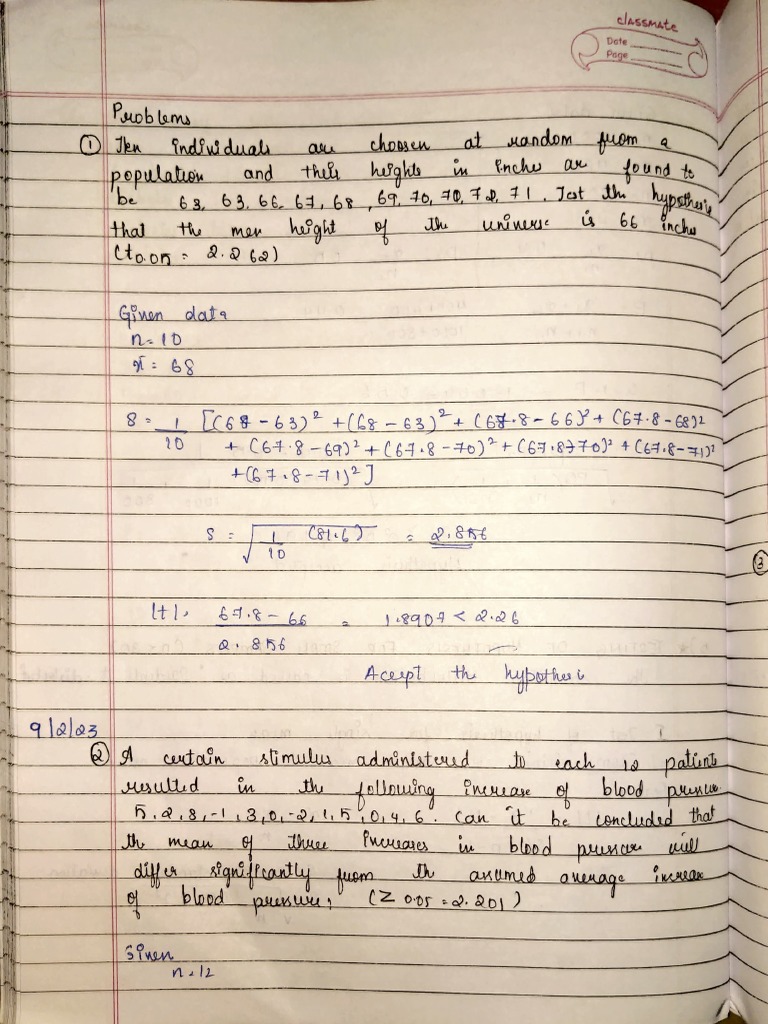 classmate
Date
Page
Problems
① Ten individuals are choosen at random from a
population and their heights in inche are found to
be 63, 63, 66, 67, 68, 69, 70, 70, 72, 71. Test the hypothesis
that the men height of the universe is 66 inche
(t0.05 = 2.262)
Given data
n = 10
x̄ = 68
S = 1/10 [(68 - 63)² + (68 - 63)² + (67.8 - 66)² + (67.8 - 68)²
+ (67.8 - 69)² + (67.8 - 70)² + (67.8 - 70)² + (67.8 - 71)²
+ (67.8 - 71)²]
S = √1/10 (81.6) = 2.856
③
|t| = 67.8 - 66 / 2.856 = 1.8907 < 2.26
Acept the hypothesi
9/2/23
② A certain stimulus administered to each 12 patient
resulted in the following increase of blood pressure
5, 2, 8, -1, 3, 0, -2, 1, 5, 0, 4, 6. Can it be concluded that
the mean of three Increases in blood pressure will
differ significantly from the assumed average increase
of blood pressure, (Z 0.05 = 2.201)
Given
n = 12